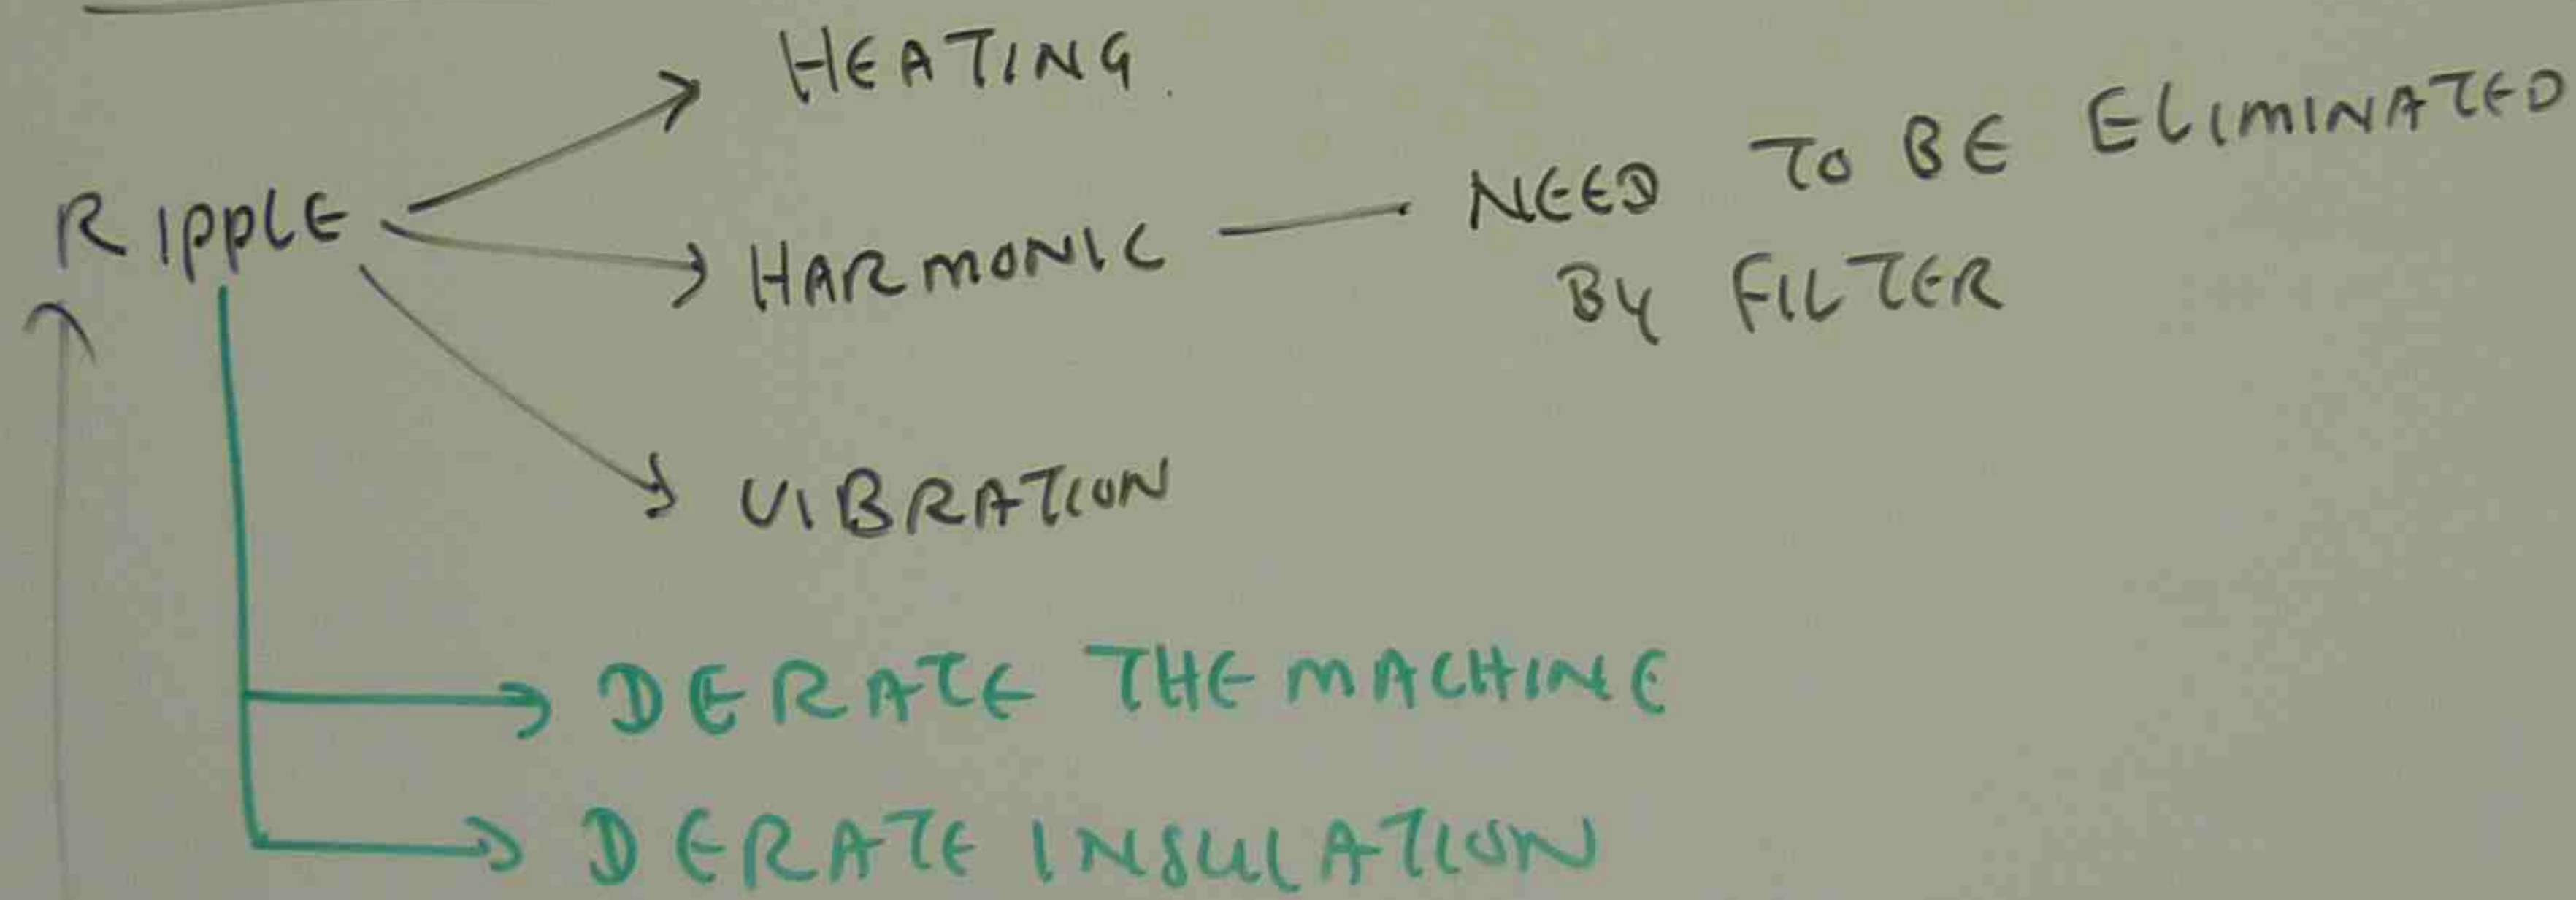 HEATING.
RIPPLE
HARMONIC — NEED TO BE ELIMINATED
BY FILTER
VIBRATION
DERATE THE MACHINE
DERATE INSULATION